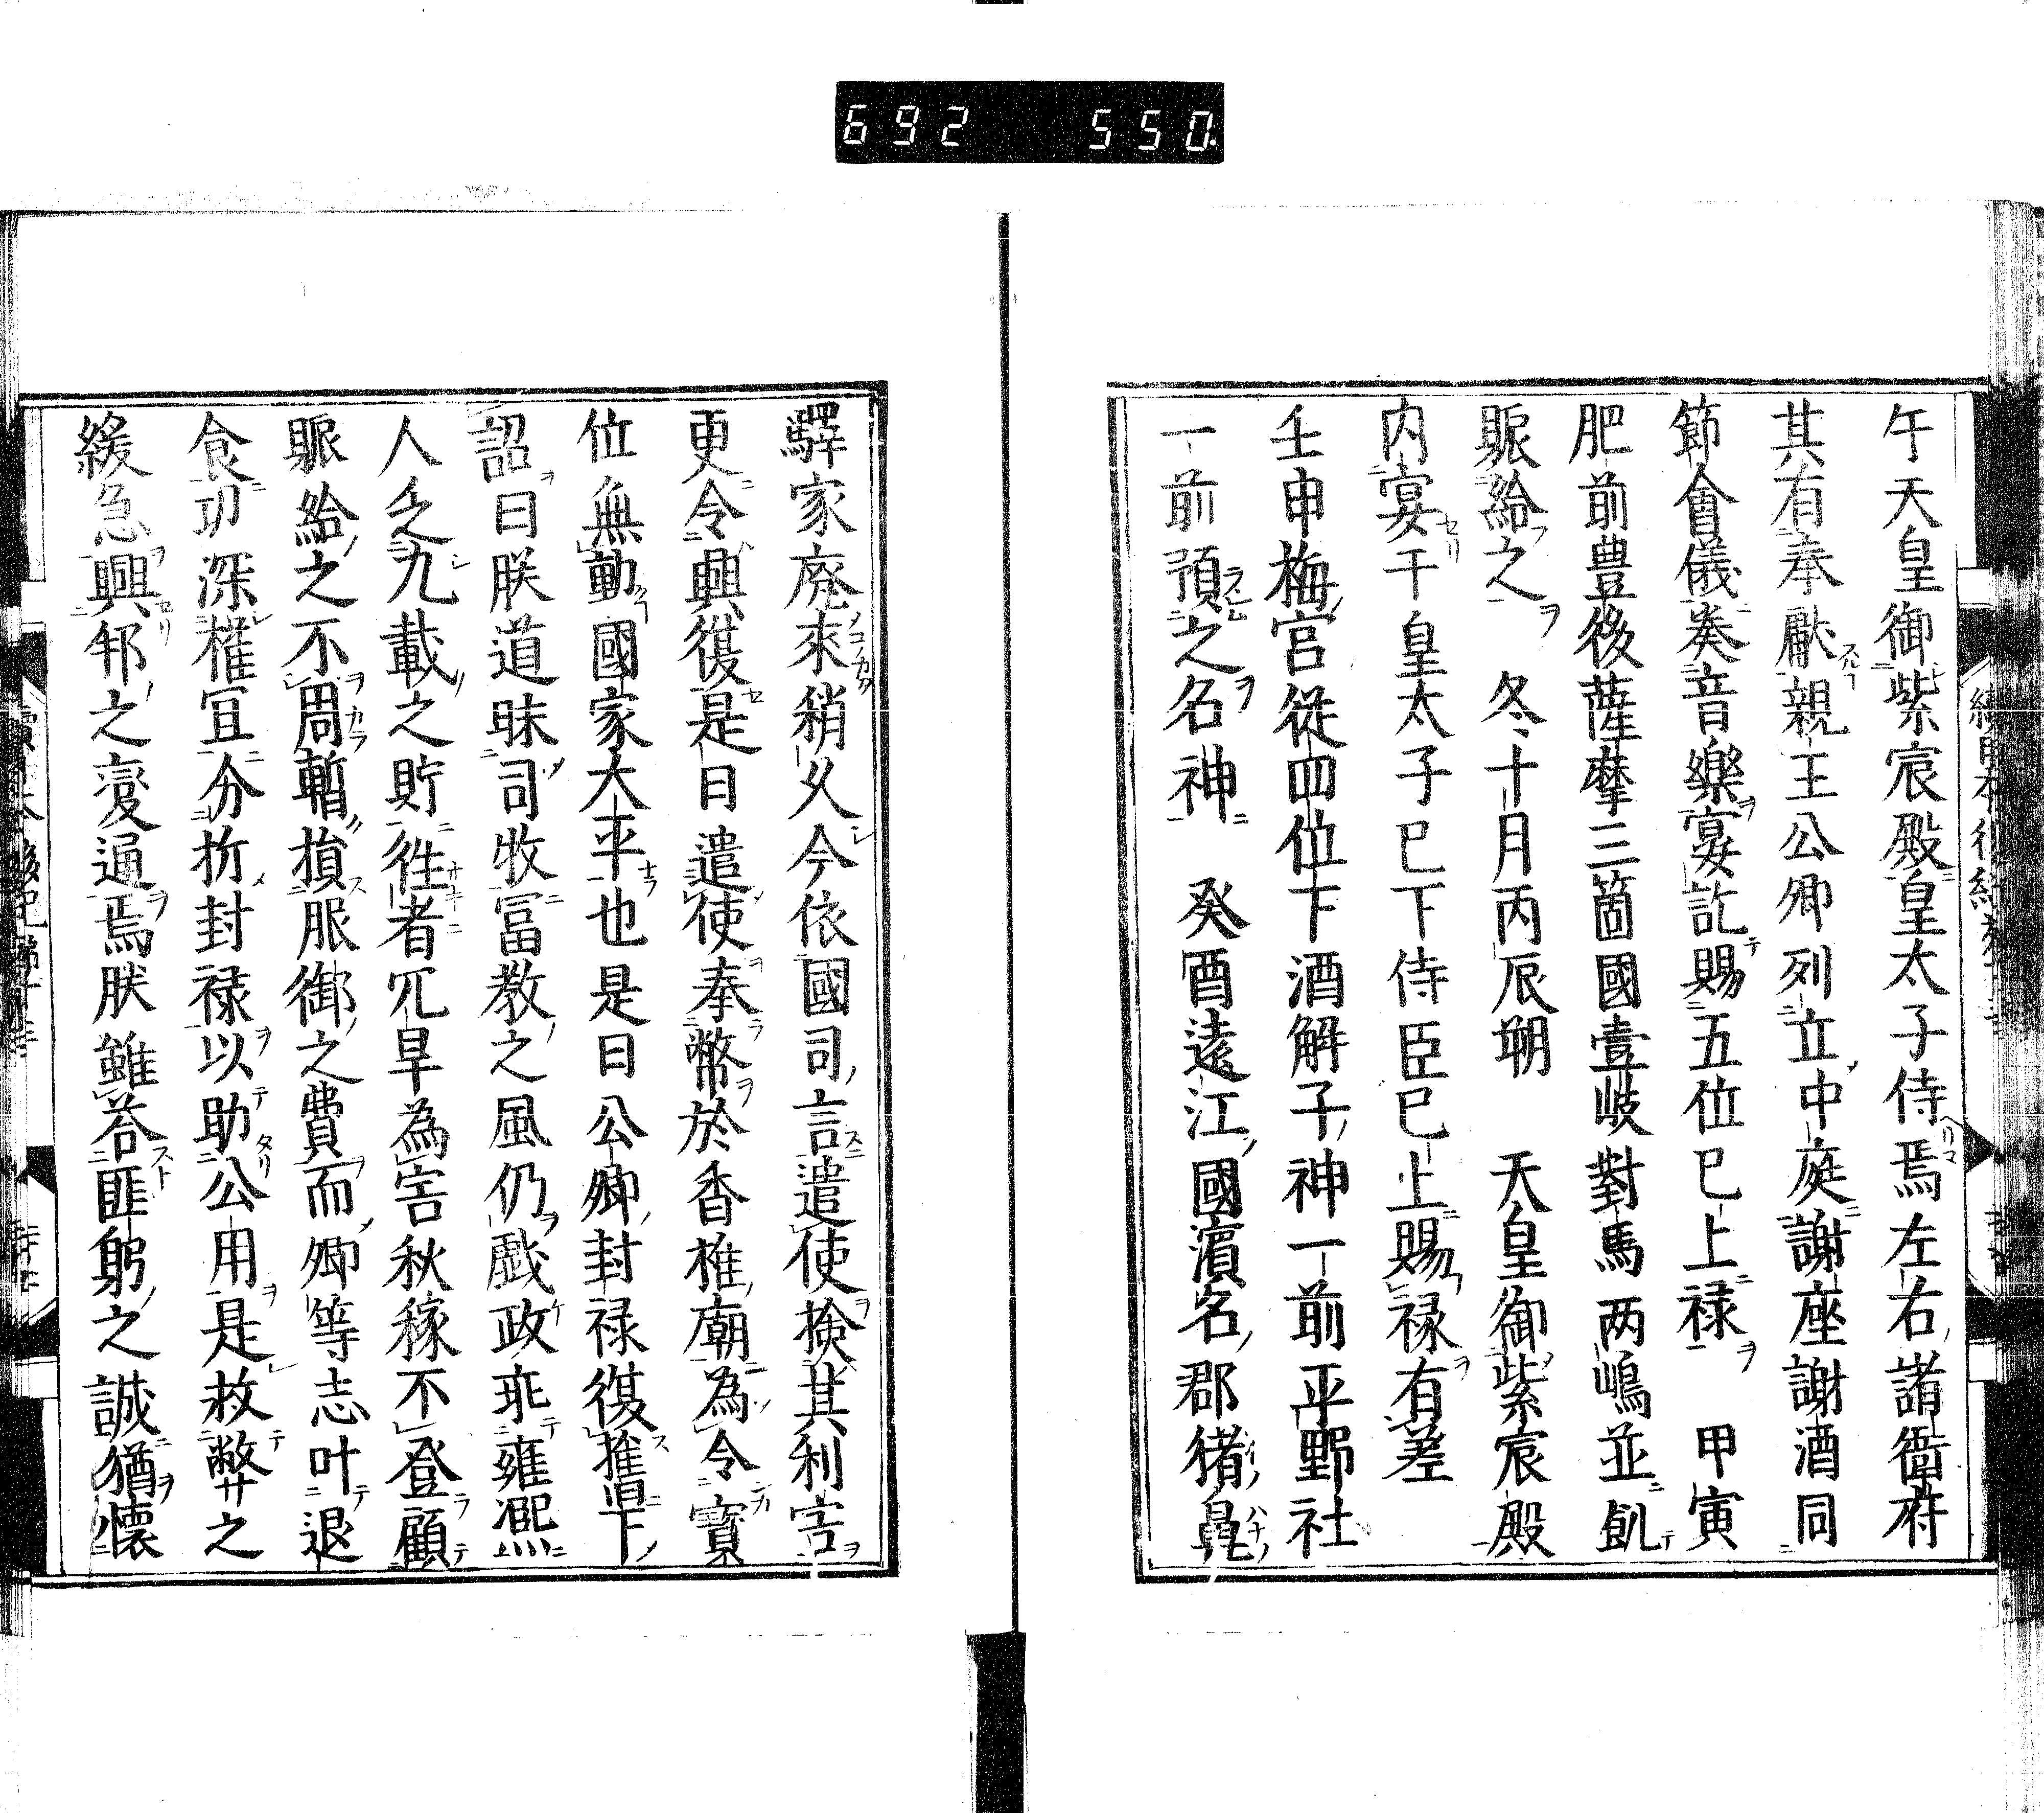 692 550
午天皇御紫宸殿皇太子侍焉左右諸衞府
其有奉獻親王公卿列立中庭謝座謝酒同
節會儀奏音樂宴訖賜五位已上禄 甲寅
肥前豊後薩摩三箇國壹岐對馬两嶋並飢
賑給之 冬十月丙辰朔 天皇御紫宸殿
内宴干皇太子已下侍臣已上賜禄有差
壬申梅宮從四位下酒解子神一前平野社
一前預之名神 癸酉遠江國濱名郡猪鼻
驛家廃來稍久今依國司言遣使撿其利害
更令興復是日遣使奉幣於香椎廟為令寳
位無動國家大平也是日公卿封禄復推畀下
詔曰朕道昧司牧冨教之風仍戯政乖雍凞
人乏九載之貯徃者亢旱為害秋稼不登顧
賑給之不周暫損服御之費而卿等志叶退
食功深權冝分折封禄以助公用是救弊之
緩急興邦之變通焉朕雖荅匪躬之誠猶懷